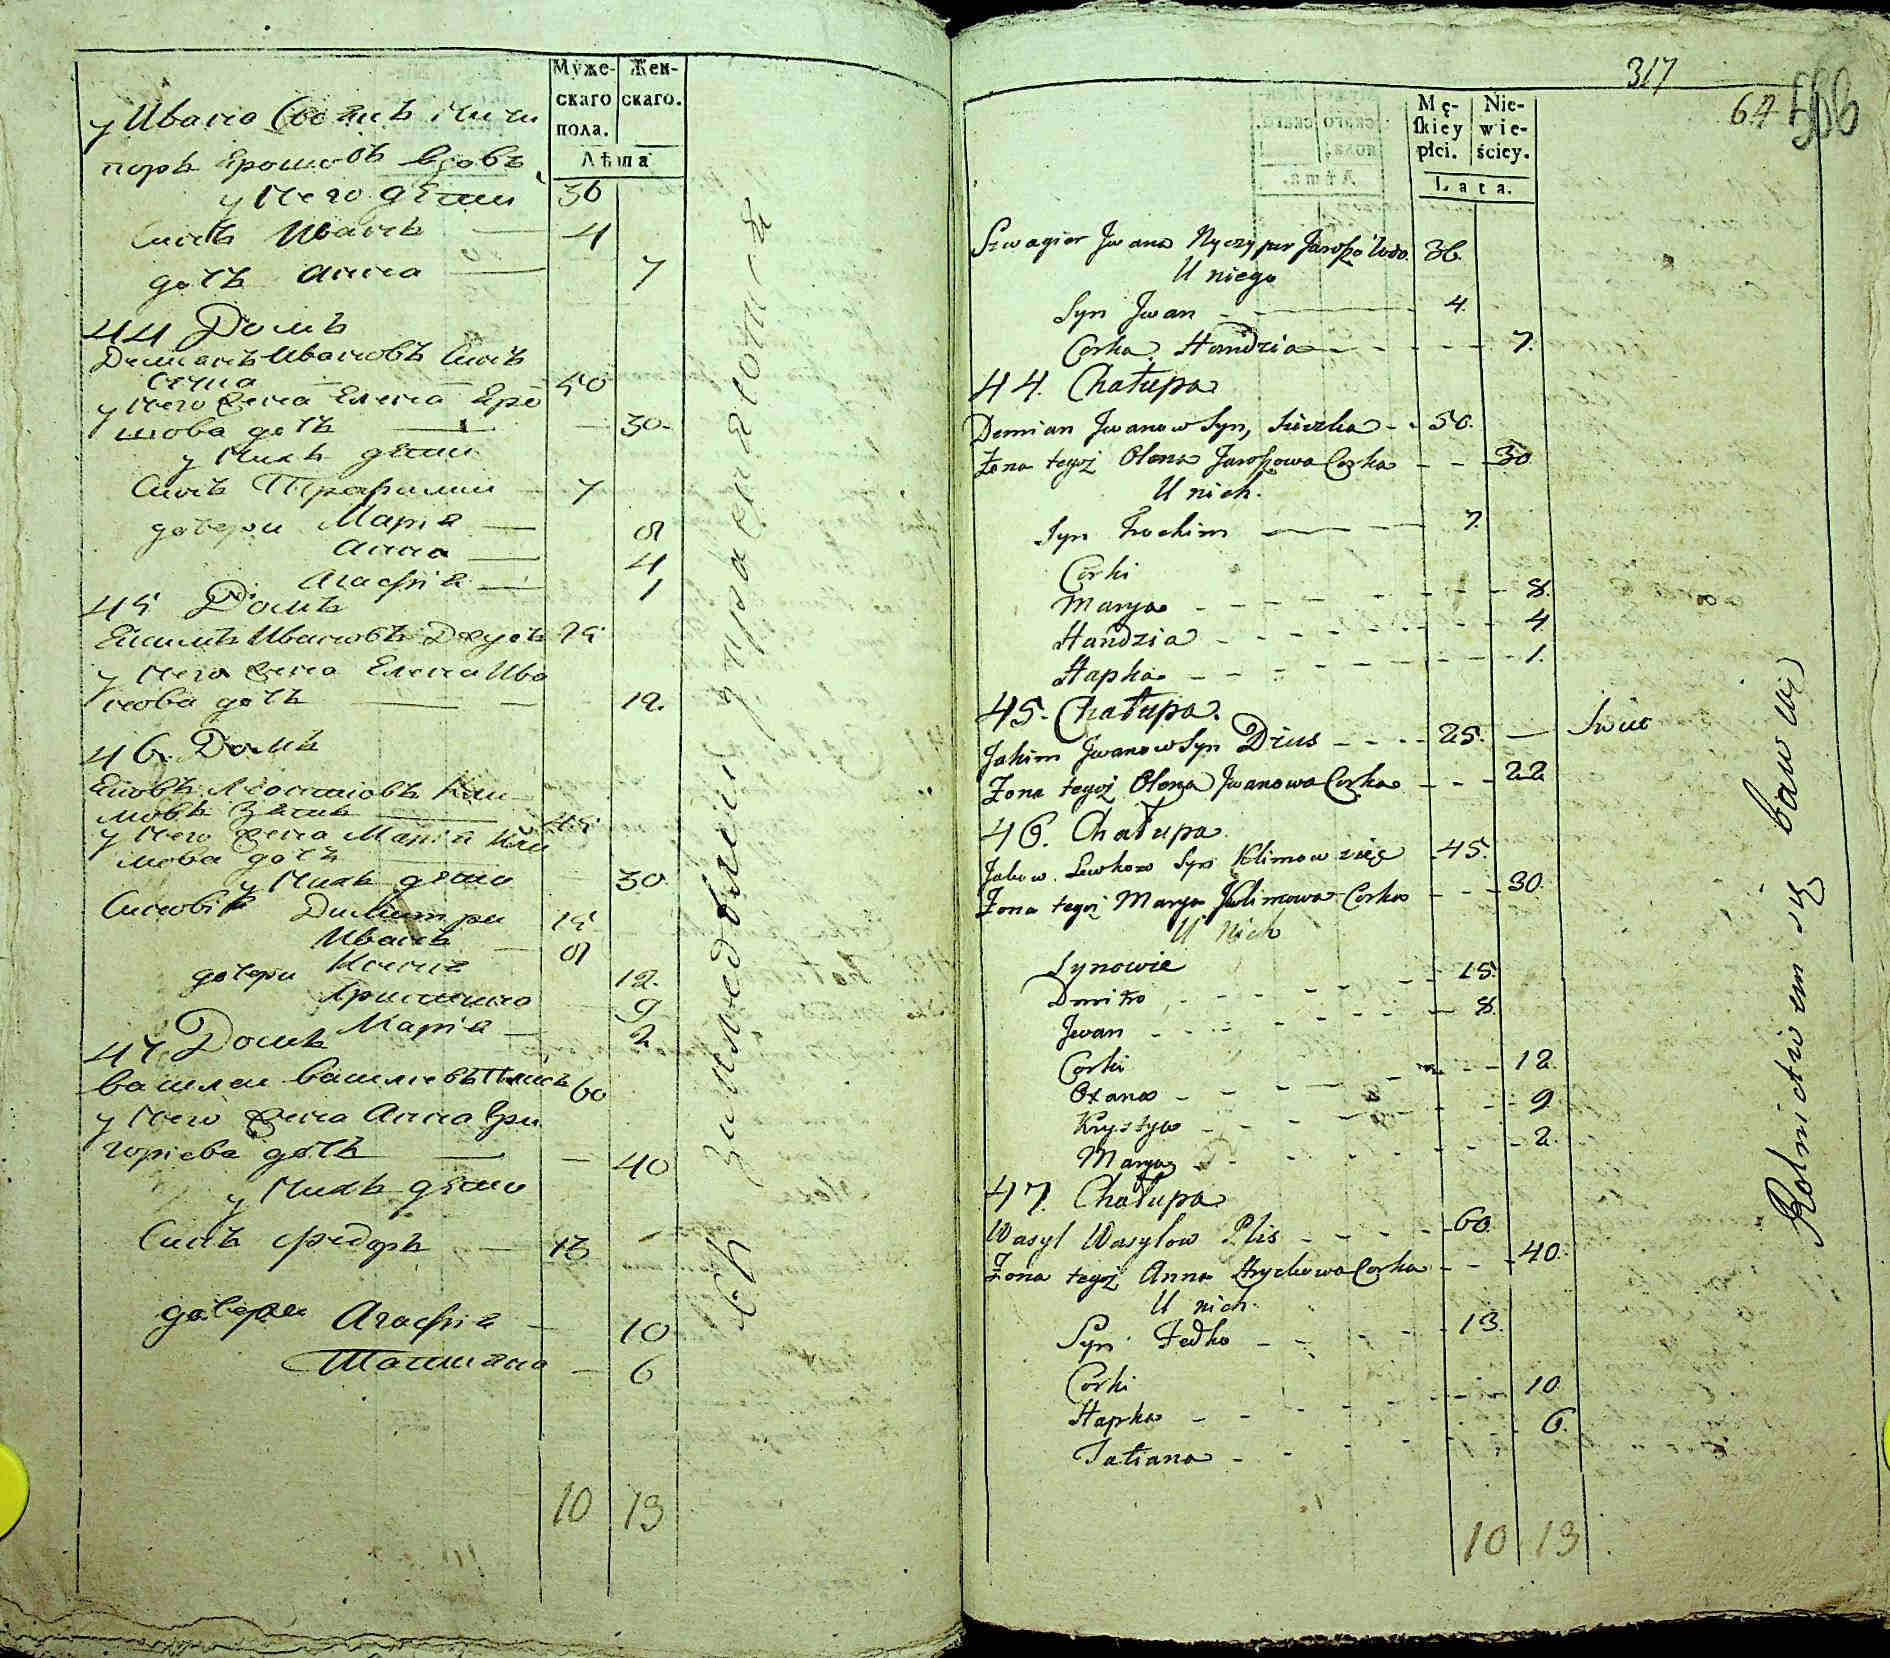 Муже-
скаго
пола.
Жен-
скаго.
Лѣта
у Ивана
порѣ
у него дѣти
36
Синъ Иванъ
4
дочь Анна
7
44 Домъ
Демианъ Ивановъ Синъ
50
у него жена Елена Еро
шова дочь
30
у нихъ дѣти
Синъ Трофимъ
7
дочери Марія
8
Анна
4
Агафія
1
45 Домъ
Екимъ Ивановъ
25
у него жена Елена Ива
нова дочь
46 Домъ
Яковъ
мовъ Зять
45
у него жена Марія Кли
мова дочь
30
у нихъ дѣти
Синовія Дмитри
15
Иванъ
8
дочери
12
9
Марія
2
47 Домъ
Василей Василевъ Плисъ
60
у него жена Анна Гри
горіева дочь
40
у нихъ дѣти
Синъ Федоръ
13
дочери Агафія
10
Татияна
6
10 13
317
Mę-
skiey
płci.
Nie-
wie-
ściey.
Lata.
Szwagier Jwana Nyczypor 36
U niego
Syn Jwan 4
Corka Handzia 7.
44. Chałupa
Demian Jwanow Syn, 50.
Żona tegoż Olena Jaroszowa Corka 30
U nich.
Syn Trochim 7.
Corki
Marya 8.
Handzia 4
Hapka 1.
45. Chałupa.
Jakim Jwanow Syn Dzius 25.
Żona tegoż Olena Jwanowa Corka 22
46. Chałupa
Jakow Lewkow Syn Klimow zięć 45.
Żona tegoż Marya Klimowa Corka 30.
U nich
Synowie
Dmitro 15.
Jwan 8.
Corki
Oxana 12.
Krystyna 9
Marya 2.
47. Chałupa
Wasyl Wasylow Plis 60.
Żona tegoż Anna Hryckowa Corka 40.
U nich.
Syn Fedko 13.
Corki
Hapka 10
Tatiana 6.
10 13
Rolnictwem się bawią